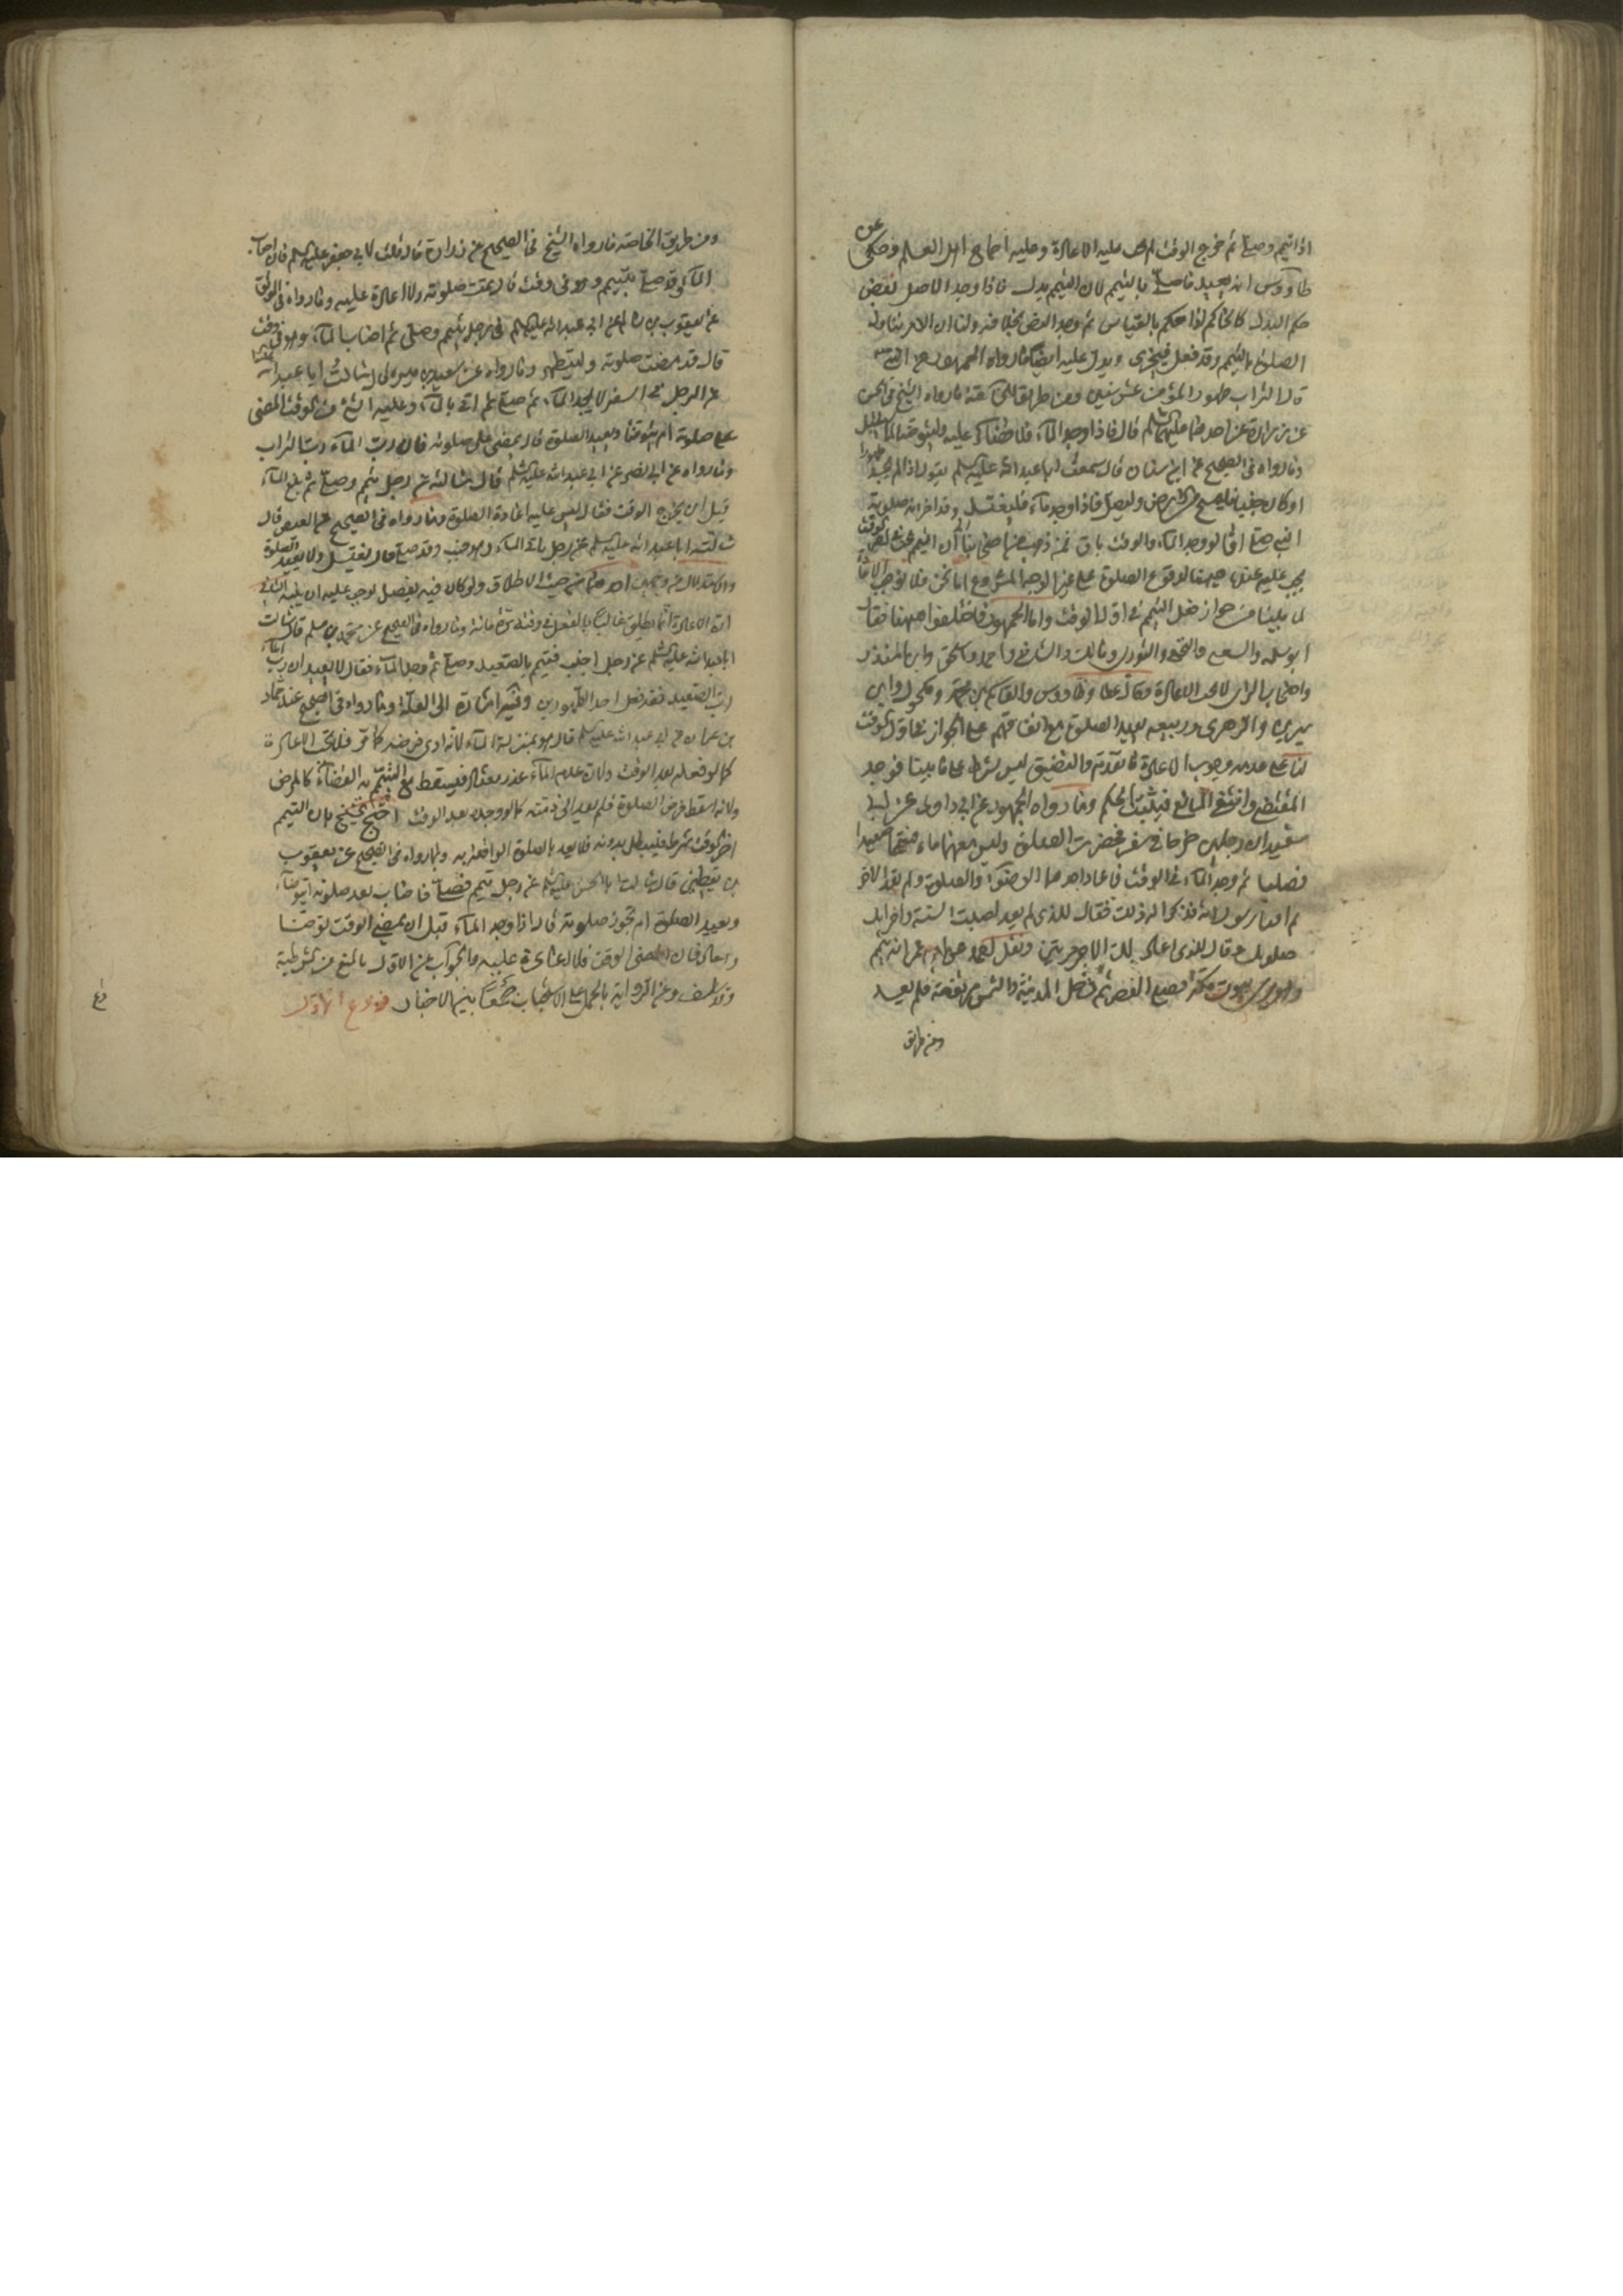 اذا تيمم وصلى ثم خرج الوقت لم يجب عليه الاعادة وعليه اجماع اهل العلم وحكى عن
طاووس انه يعيد ما صلى بالتيمم لان التيمم بدل فاذا وجد الاصل نقض
حكم البدل كالحاكم اذا حكم بالقياس ثم وجد النص بخلافه ولنا ان الامر بتناول
الصلوة بالتيمم وقد فعل فيجزى ويدل عليه ايضا ما رواه الجمهور عن النبي
قال التراب طهور المؤمن عشر سنين ومن طريق الخاصة ما رواه الشيخ في الحسن
عن زرارة عن احدهما عليهما السلم قال فاذا وجد الماء فلا قضاء عليه وليتوضأ لما يستقبل
وما رواه في الصحيح عن ابن سنان قال سمعت ابا عبد الله عليه السلم يقول اذا لم يجد طهورا
وكان جنبا فليمسح من الارض وليصل فاذا وجد ماء فليغتسل وقد اجزأته صلوته
التي صلى اما لو وجد الماء والوقت باق فمن ذهب من اصحابنا الى ان التيمم
يجب عليه عنده ههنا لوقوع الصلوة على غير الوجه المشروع اما نحن فلا نوجب الاعادة
لما بينا من جواز فعل التيمم في اول الوقت واما الجمهور فاختلفوا ههنا فقال
ابو سلمة والشعبي والنخعي والثوري ومالك والشافعي واحمد واسحق وابن المنذر
واصحاب الراى لا يجب الاعادة وقال عطا وطاووس والقاسم بن محمد ومكحول وابن
سيرين والزهري وربيعة يعيد الصلوة مع اتفاقهم على الجواز في اول الوقت
لنا على عدم وجوب الاعادة ما تقدم والتضيق ليس بشرط على ما بينا فوجد
المقتضى وانتفى المانع فيثبت الحكم وما رواه الجمهور عن ابي داود عن ابي
سعيد ان رجلين خرجا في سفر فحضرت الصلوة وليس معهما ماء فتيمما صعيدا
فصليا ثم وجد الماء في الوقت فاعاد احدهما الوضوء والصلوة ولم يعد الاخر
ثم اتيا رسول الله فذكرا له ذلك فقال للذى لم يعد اصبت السنة واجزأتك
صلوتك وقال للذى اعاد لك الاجر مرتين ونقل احمد عن ابن عمر انه تيمم
وهو يرى بيوت مكة فصلى العصر ثم دخل المدينة والشمس مرتفعة فلم يعد
ومن طريق
ومن طريق الخاصة ما رواه الشيخ في الصحيح عن زرارة قال قلت لابي جعفر عليه السلم فان اصاب
الماء وقد صلى بتيمم وهو في وقت قال تمت صلوته ولا اعادة عليه وما رواه في الموثق
عن يعقوب بن سالم عن ابي عبد الله عليه السلم في رجل تيمم وصلى ثم اصاب الماء وهو في وقت
قال قد مضت صلوته وليتطهر وما رواه عن معاوية بن ميسرة قال سالت ابا عبد الله
عن الرجل في السفر لا يجد الماء ثم صلى ثم اتى بالماء وعليه شئ من الوقت ايمضى
على صلوته ام يتوضأ ويعيد الصلوة قال يمضى على صلوته فان رب الماء رب التراب
وما رواه عن ابي بصير عن ابي عبد الله عليه السلم قال سالته عن رجل تيمم وصلى ثم بلغ الماء
قبل ان يخرج الوقت فقال ليس عليه اعادة الصلوة وما رواه في الصحيح عن العيص قال
سالت ابا عبد الله عليه السلم عن رجل ياتى الماء وهو جنب وقد صلى قال يغتسل ولا يعيد الصلوة
والاستدلال من وجهين احدهما من حيث الاطلاق ولو كان فيه تفصيل لوجب عليه ان يبينه الثاني
ان الاعادة انما يطلق غالبا بالفعل في وقته وما رواه في الصحيح عن محمد بن مسلم قال سالت
ابا عبد الله عليه السلم عن رجل اجنب فتيمم بالصعيد وصلى ثم وجد الماء فقال لا يعيد ان رب الماء
رب الصعيد فقد فعل احد الطهورين وفيه اشارة الى العلة وما رواه في الصحيح عن حماد
بن عثمان عن ابي عبد الله عليه السلم قال هو بمنزلة الماء لانه ادى فرضه كما امر فلا يجب الاعادة
كما لو فعله بعد الوقت ولان عدم الماء عذر معتاد فيسقط مع التيمم به القضاء كالمرض
ولانه اسقط فرض الصلوة فلم يعد الى ذمته كما لو وجده بعد الوقت احتج الشيخ بان التيمم
اخر الوقت شرط فيبطل بدونه فلا يعتد بالصلوة الواقعة به وبما رواه في الصحيح عن يعقوب
بن يقطين قال سالت ابا الحسن عليه السلم عن رجل تيمم فصلى فاصاب بعد صلوته ماء ايتوضأ
ويعيد الصلوة ام تجوز صلوته قال اذا وجد الماء قبل ان يمضى الوقت توضأ
واعاد فان مضى الوقت فلا اعادة عليه والجواب عن الاول بالمنع من الشرطية
وقد سلف وعن الرواية بالحمل على الاستحباب جمعا بين الاخبار فروع الاول